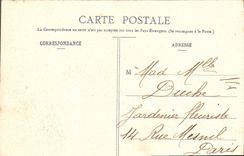 CARTE POSTALE
La Correspondance au recto n'est pas acceptée par tous les Pays Étrangers. (Se renseigner à la Poste.)
CORRESPONDANCE
ADRESSE
M Mad Mlle
Duche
Jardinier fleuriste
14 Rue Mesnil
Paris